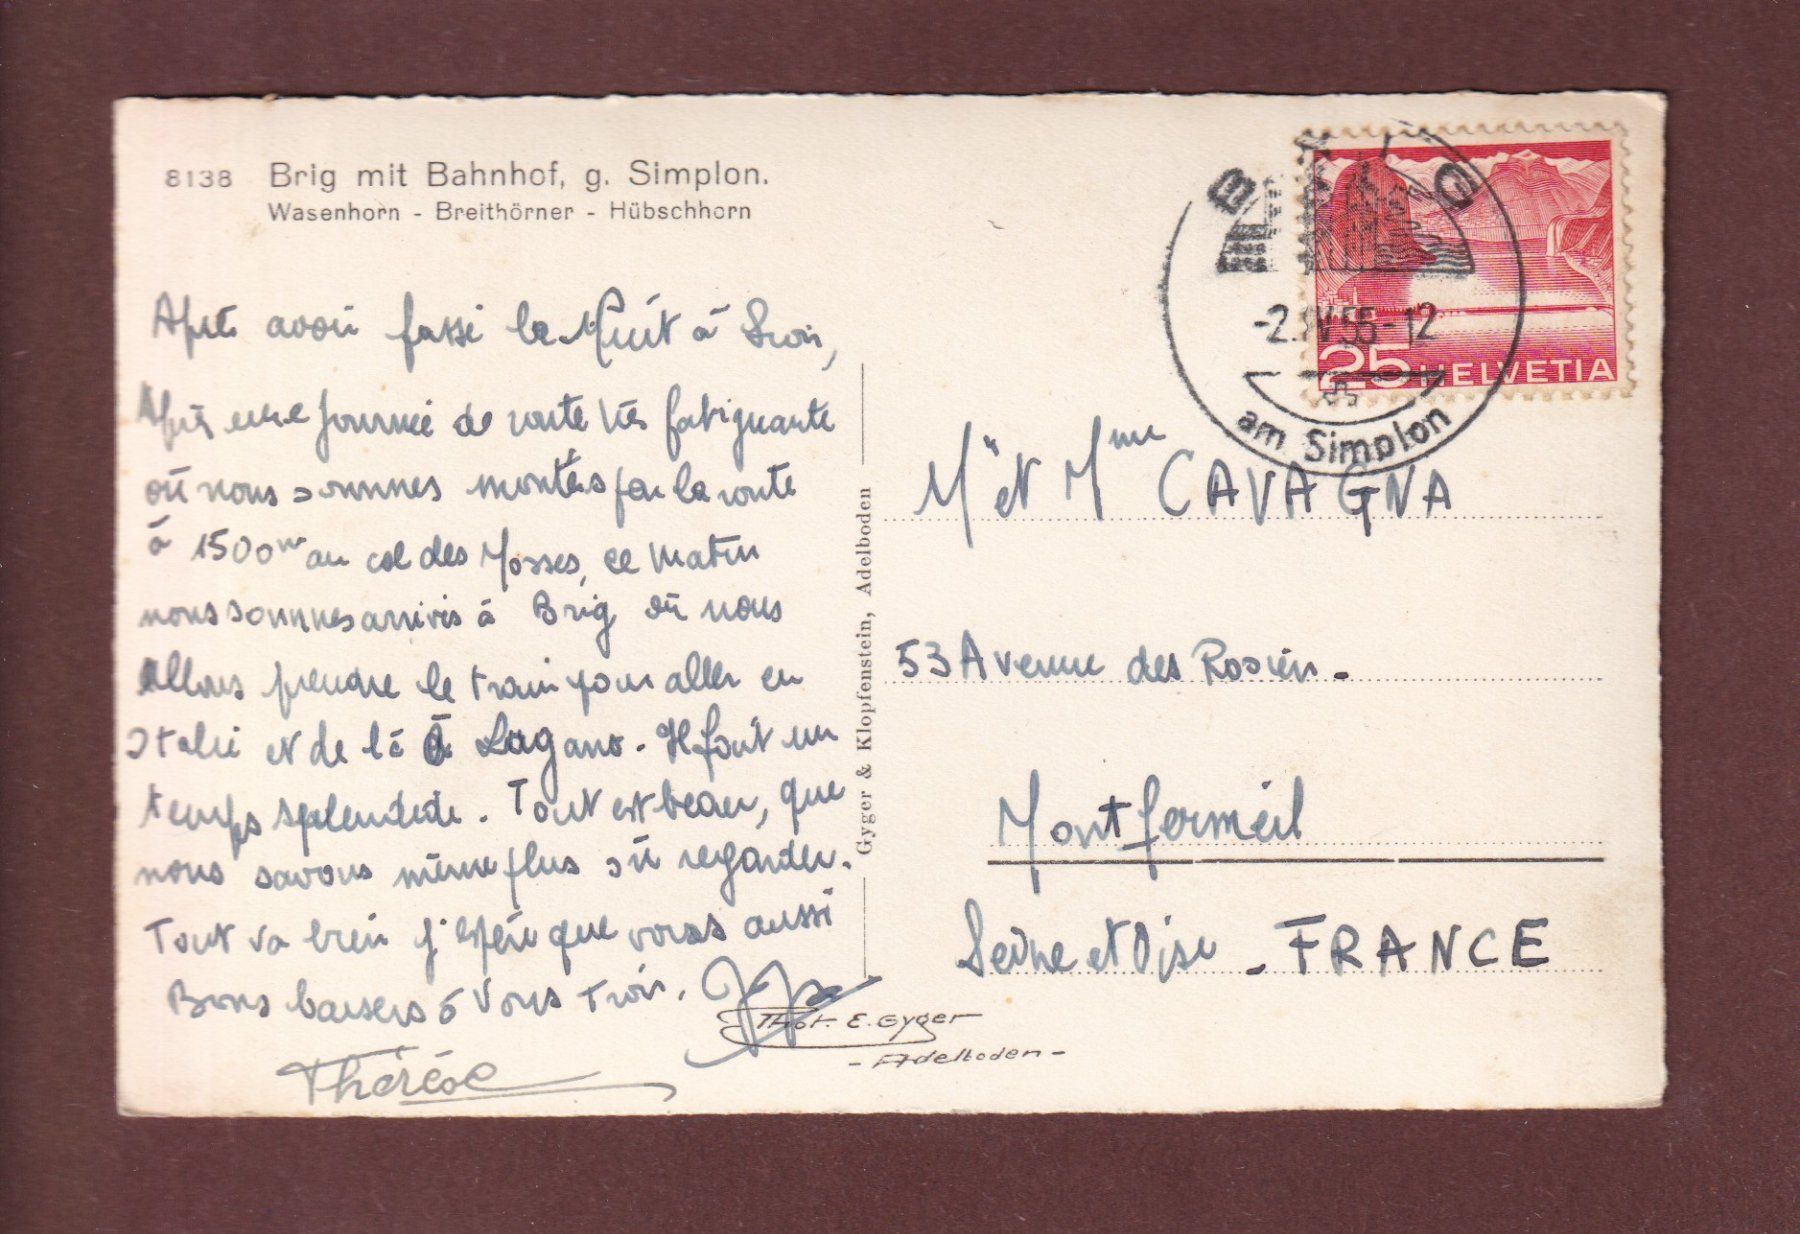 8138 Brig mit Bahnhof, g. Simplon.
Wasenhorn - Breithörner - Hübschhorn
Après avoir passé la Nuit à Sion,
Après une journée de route très fatiguante
où nous sommes montés par la route
à 1500m au col des Mosses, ce matin
nous sommes arrivés à Brig où nous
allons prendre le train pour aller en
Italie et de là à Lugano. Il fait un
temps splendide. Tout est beau, que
nous savons même plus où regarder.
Tout va bien j'espère que vous aussi
Bons baisers à Vous Trois.
Thérèse
Phot. E. Gyger
- Adelboden -
Gyger & Klopfenstein, Adelboden
BRIG
-2.IV.55-12
am Simplon
25 HELVETIA
Mr et Mme CAVAGNA
53 Avenue des Rosiers -
Montfermeil
Seine et Oise - FRANCE